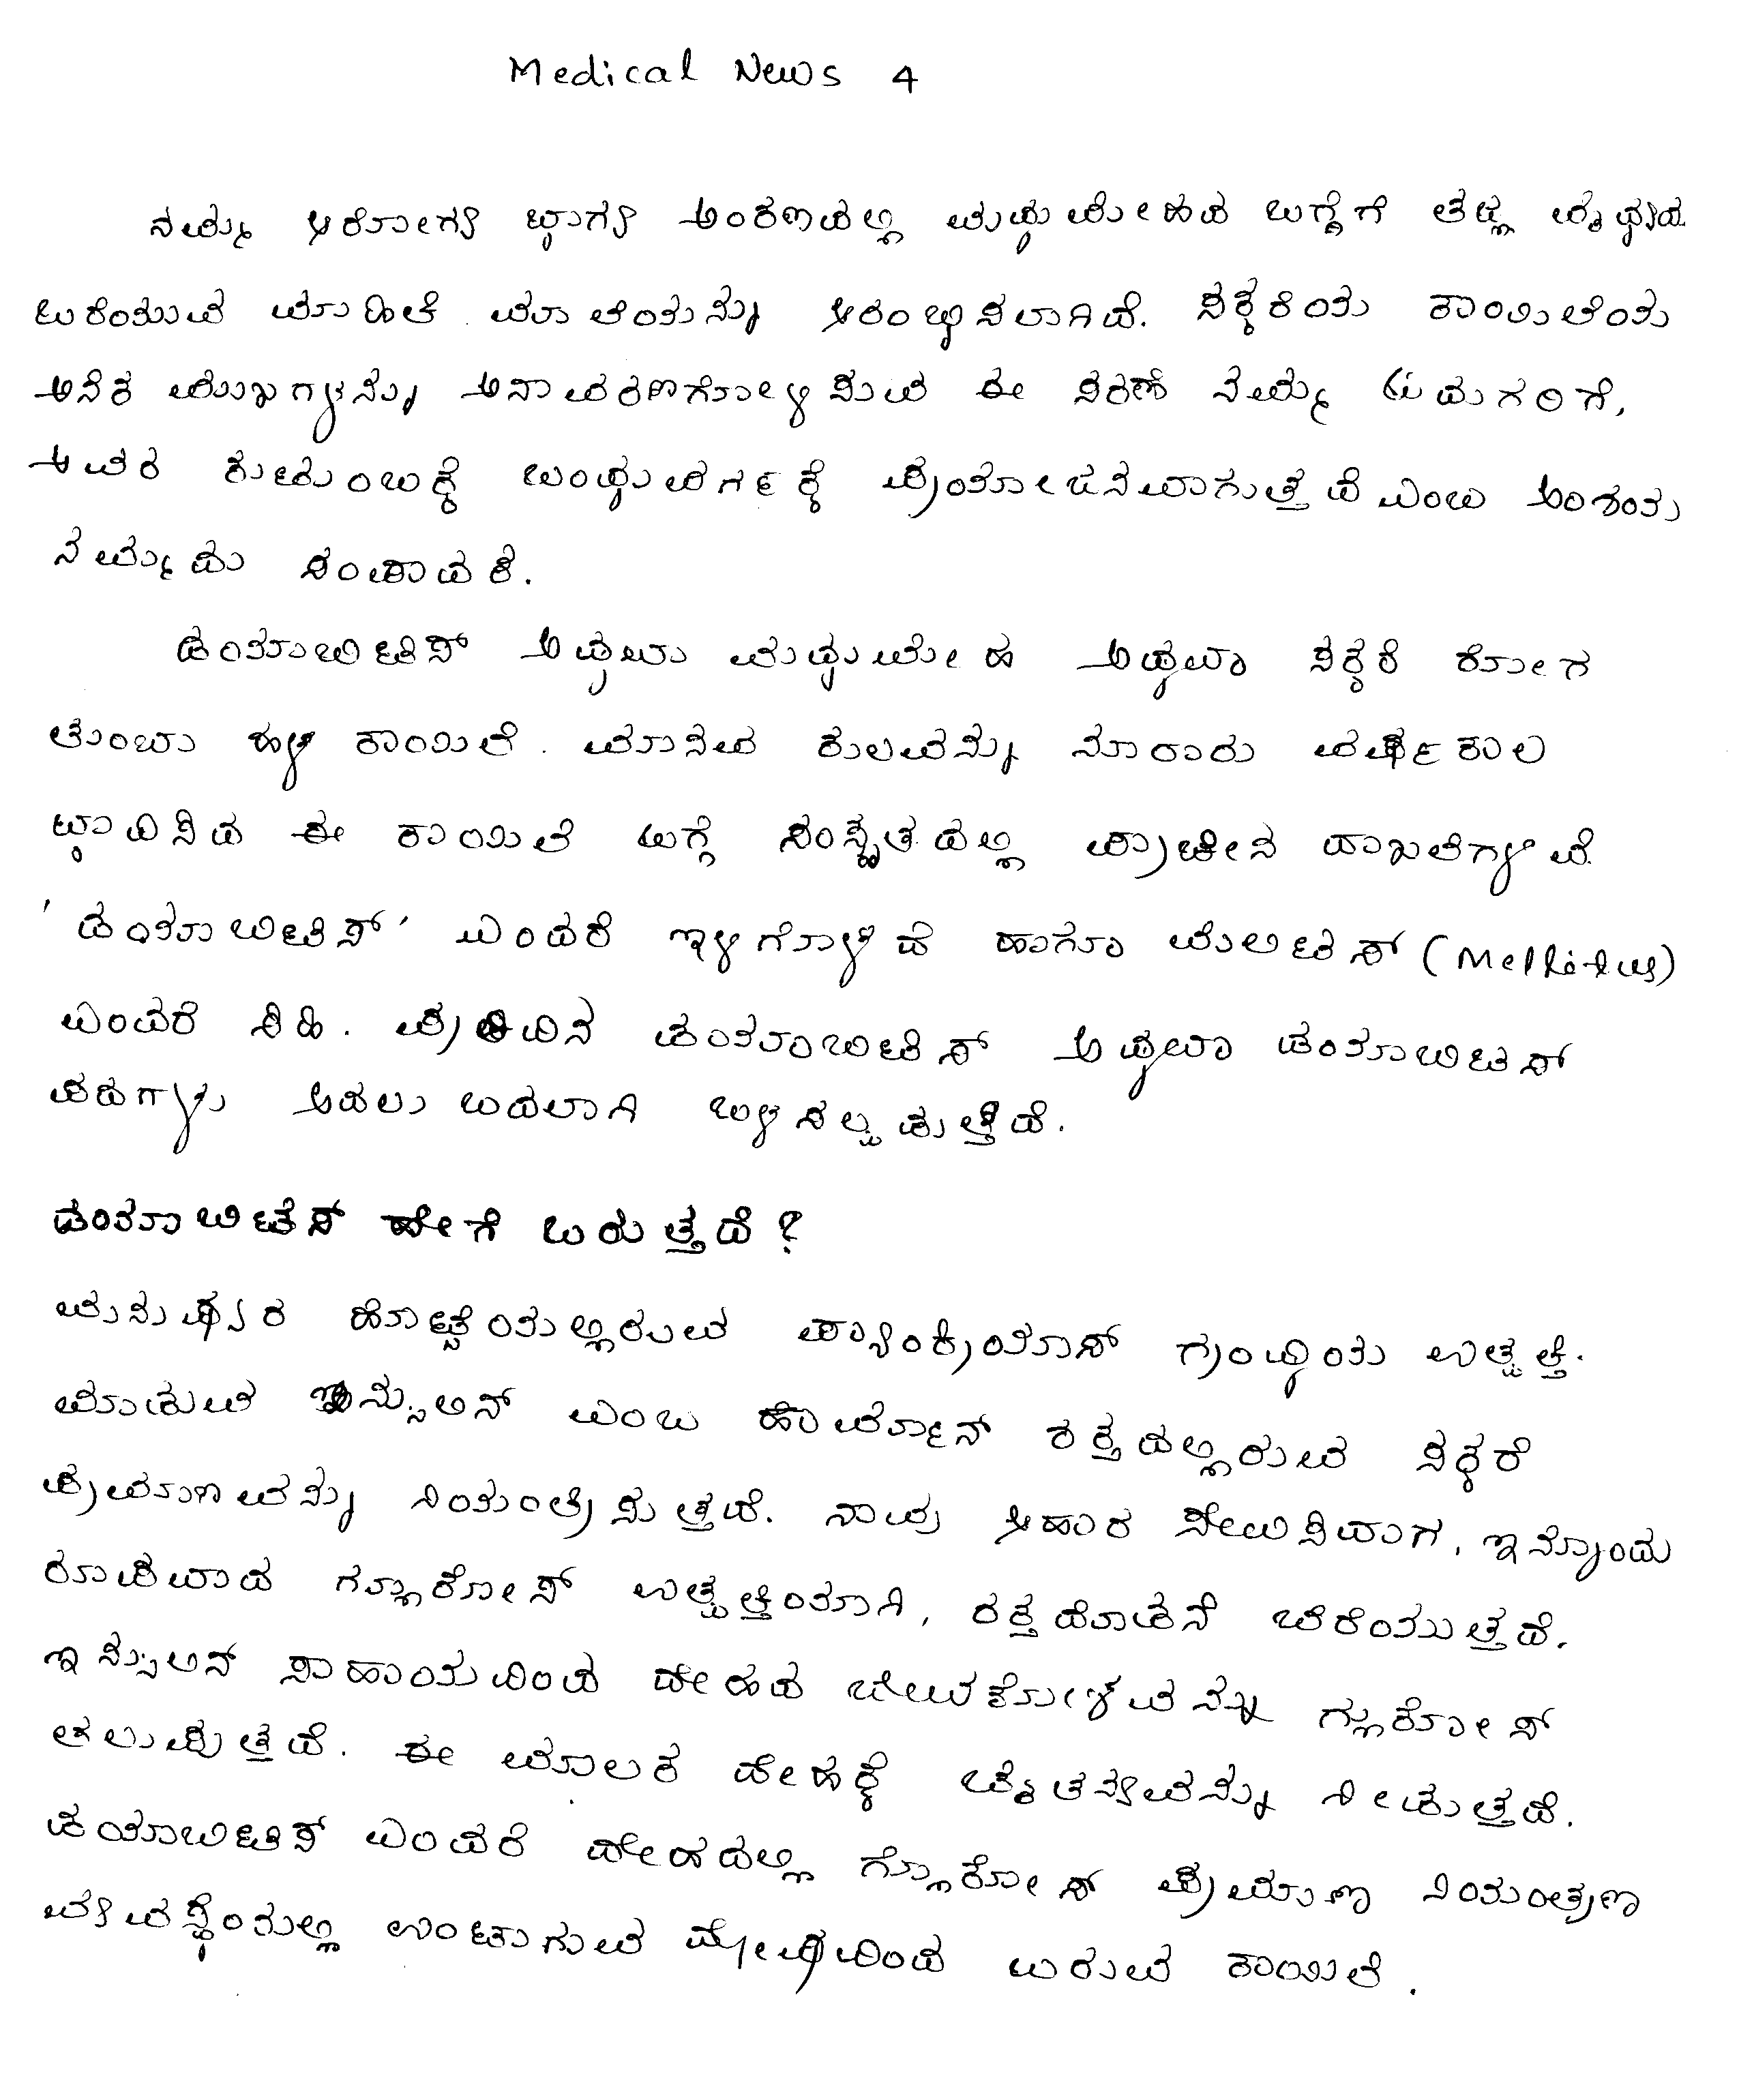 Medical News 4
ನಮ್ಮ ಆರೋಗ್ಯ ಭಾಗ್ಯ ಅಂಕಣದಲ್ಲಿ ಮಧುಮೇಹದ ಬಗ್ಗೆಗೆ ತಜ್ಞ ವೈಧ್ಯರು
ಬರೆಯುವ ಮಾಹಿತಿ ಮಾಲೆಯನ್ನು ಆರಂಭಿಸಲಾಗಿದೆ. ಸಕ್ಕರೆಯ ಕಾಯಿಲೆಯ
ಅನೇಕ ಮುಖಗಳನ್ನು ಅನಾವರಣಗೋಳಿಸುವ ಈ ಸರಣಿ ನಮ್ಮ ಓದುಗರಿಗೆ,
ಅವರ ಕುಟುಂಬಕ್ಕೆ ಬಂಧುವರ್ಗಕ್ಕೆ ಪ್ರಯೋಜನವಾಗುತ್ತದೆ ಎಂಬ ಅಂಶಯ
ನಮ್ಮದು ಸಂಪಾದಕಿ.
ಡಯಾಬಿಟಿಸ್ ಅಥವಾ ಮಧುಮೇಹ ಅಥವಾ ಸಕ್ಕರೆ ರೋಗ
ತುಂಬಾ ಹಳೆ ಕಾಯಿಲೆ. ಮಾನವ ಕುಲವನ್ನು ನೂರಾರು ವರ್ಷಕಾಲ
ಭಾದಿಸಿದ ಈ ಕಾಯಿಲೆ ಬಗ್ಗೆ ಸಂಸ್ಕೃತದಲ್ಲಿ ಪ್ರಾಚೀನ ದಾಖಲೆಗಳಿವೆ
'ಡಯಾಬಿಟಿಸ್' ಎಂದರೆ ಇಳಿಗೊಳಿಕೆ ಹಾಗೂ ಮೆಲಿಟಸ್ (Mellitus)
ಎಂದರೆ ಸಿಹಿ. ಪ್ರತಿದಿನ ಡಯಾಬಿಟಿಸ್ ಅಥವಾ ಡಯಾಬಿಟಿಸ್
ಪದಗಳು ಅದಲು ಬದಲಾಗಿ ಬಳಸಲ್ಪಡುತ್ತಿದೆ.
ಡಯಾಬಿಟಿಸ್ ಹೇಗೆ ಬರುತ್ತದೆ?
ಮನುಷ್ಯರ ಹೊಟ್ಟೆಯಲ್ಲಿರುವ ಪ್ಯಾಂಕ್ರಿಯಾಸ್ ಗ್ರಂಥಿಯ ಉತ್ಪತ್ತಿ.
ಮಾಡುವ ಇನ್ಸುಲಿನ್ ಎಂಬ ಹಾರ್ಮೋನ್ ರಕ್ತದಲ್ಲಿರುವ ಸಕ್ಕರೆ
ಪ್ರಮಾಣವನ್ನು ನಿಯಂತ್ರಿಸುತ್ತದೆ. ನಾವು ಆಹಾರ ಸೇವಿಸಿದಾಗ, ಇನ್ನೊಂದು
ರೂಪವಾದ ಗ್ಲೂಕೋಸ್ ಉತ್ಪತ್ತಿಯಾಗಿ, ರಕ್ತದೊಡನೆ ಬೆರೆಯುತ್ತದೆ.
ಇನ್ಸುಲಿನ್ ಸಾಹಾಯದಿಂದ ದೇಹದ ಜೀವಕೋಶವನ್ನು ಗ್ಲುಕೋಸ್
ತಲುಪುತ್ತದೆ. ಈ ಮೂಲಕ ದೇಹಕ್ಕೆ ಚೈತನ್ಯವನ್ನು ನೀಡುತ್ತದೆ.
ಡಯಾಬಿಟಿಸ್ ಎಂದರೆ ದೇಹದಲ್ಲಿ ಗ್ಲೂಕೋಸ್ ಪ್ರಮಾಣ ನಿಯಂತ್ರಣ
ವ್ಯವಸ್ಥೆಯಲ್ಲಿ ಉಂಟಾಗುವ ದೋಷದಿಂದ ಬರುವ ಕಾಯಿಲೆ.